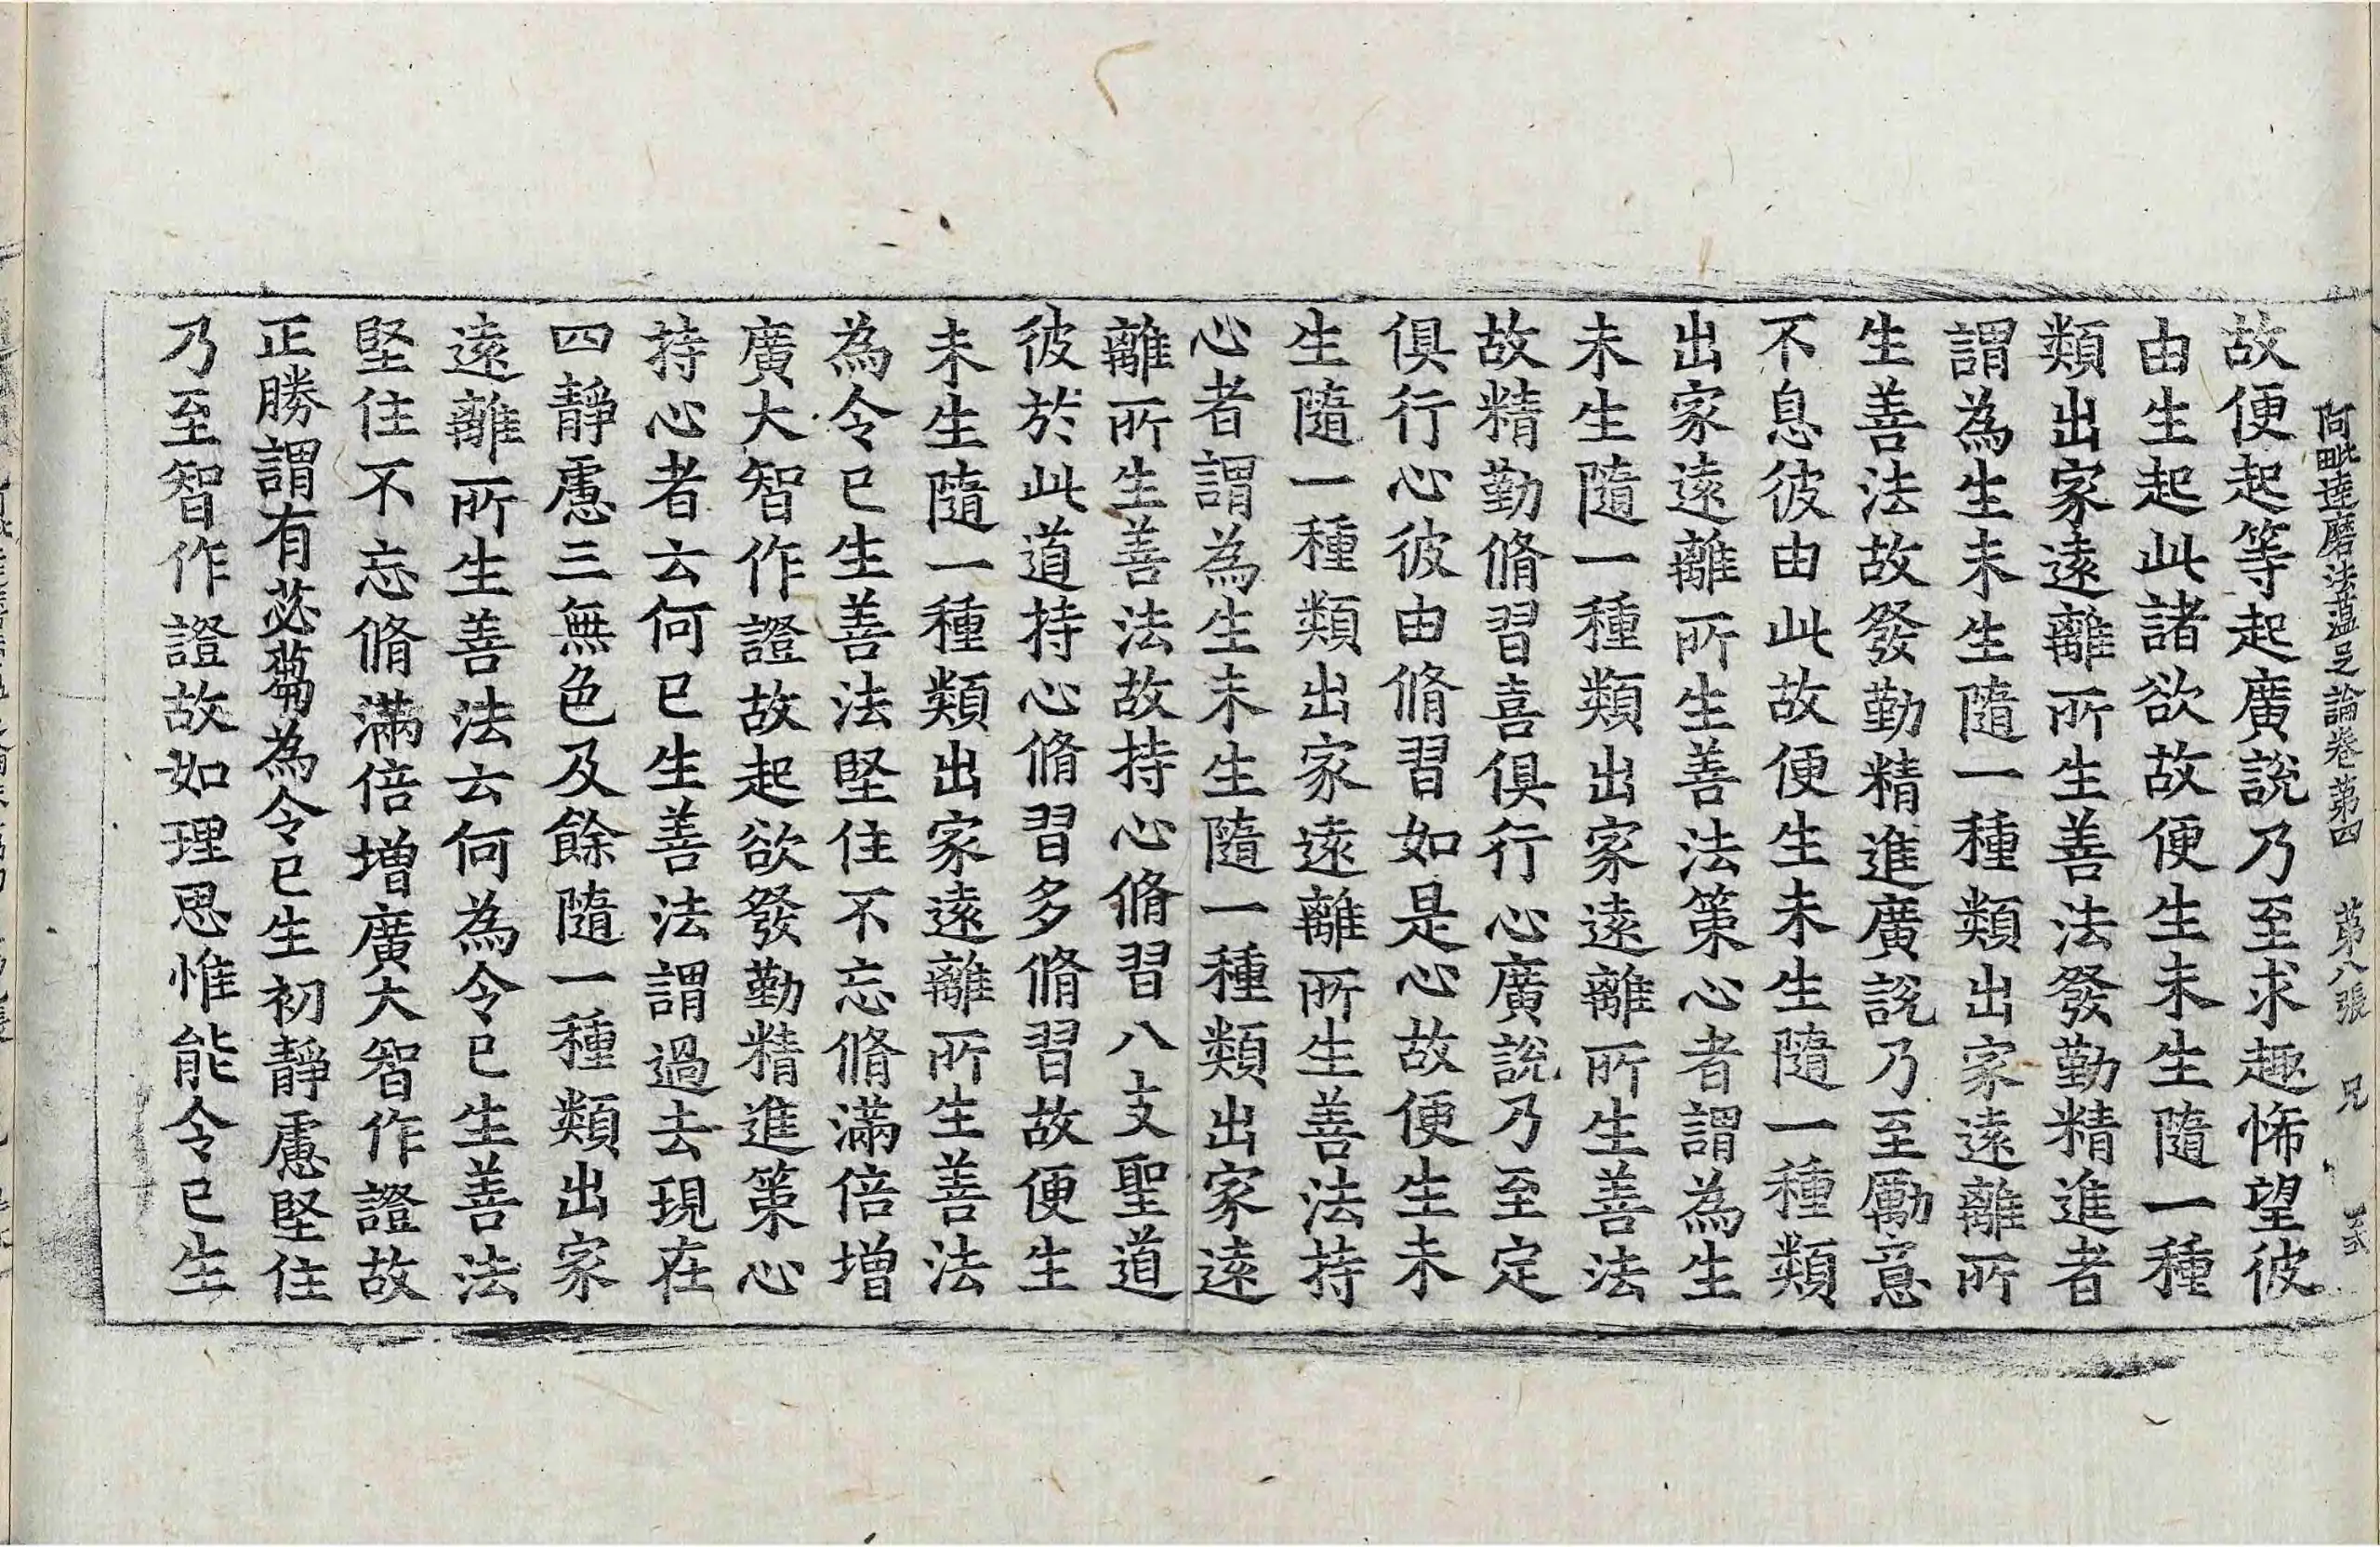 阿毗達磨法蘊足論卷第四　第八張　兄
故便起等起廣說乃至求趣悕望彼
由生起此諸欲故便生未生隨一種
類出家遠離所生善法發勤精進者
謂為生未生隨一種類出家遠離所
生善法故發勤精進廣說乃至勵意
不息彼由此故便生未生隨一種類
出家遠離所生善法策心者謂為生
未生隨一種類出家遠離所生善法
故精勤脩習喜俱行心廣說乃至定
俱行心彼由脩習如是心故便生未
生隨一種類出家遠離所生善法持
心者謂為生未生隨一種類出家遠
離所生善法故持心脩習八支聖道
彼於此道持心脩習多脩習故便生
未生隨一種類出家遠離所生善法
為令已生善法堅住不忘脩滿倍增
廣大智作證故起欲發勤精進策心
持心者云何已生善法謂過去現在
四靜慮三無色及餘隨一種類出家
遠離所生善法云何為令已生善法
堅住不忘脩滿倍增廣大智作證故
正勝謂有苾蒭為令已生初靜慮堅住
乃至智作證故如理思惟能令已生